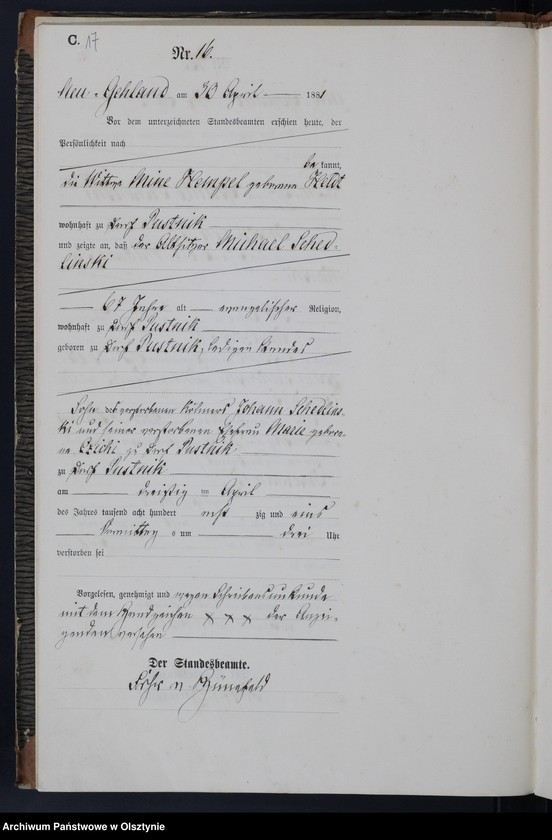 C. 17
Nr. 16.
Neu-Gehland am 30 April 1881
Vor dem unterzeichneten Standesbeamten erschien heute, der
Persönlichkeit nach
bekannt,
die Wittwe Mine Hempel geborene Heldt
wohnhaft zu Dorf Pustnik
und zeigte an, daß der Altsitzer Michael Sched-
linski
67 Jahre alt evangelischer Religion,
wohnhaft zu Dorf Pustnik
geboren zu Dorf Pustnik, ledigen Standes
Sohn des verstorbenen Kölmers Johann Schedlins-
ki und seiner verstorbenen Ehefrau Marie gebore-
ne Czichi zu Dorf Pustnik
zu Dorf Pustnik
am dreißig ten April
des Jahres tausend acht hundert acht zig und eins
Vormittag s um drei Uhr
verstorben sei
Vorgelesen, genehmigt und wegen Schreibensunkunde
mit dem Handzeichen x x x der Anzei-
genden versehen
Der Standesbeamte.
Fhr v
Archiwum Państwowe w Olsztynie